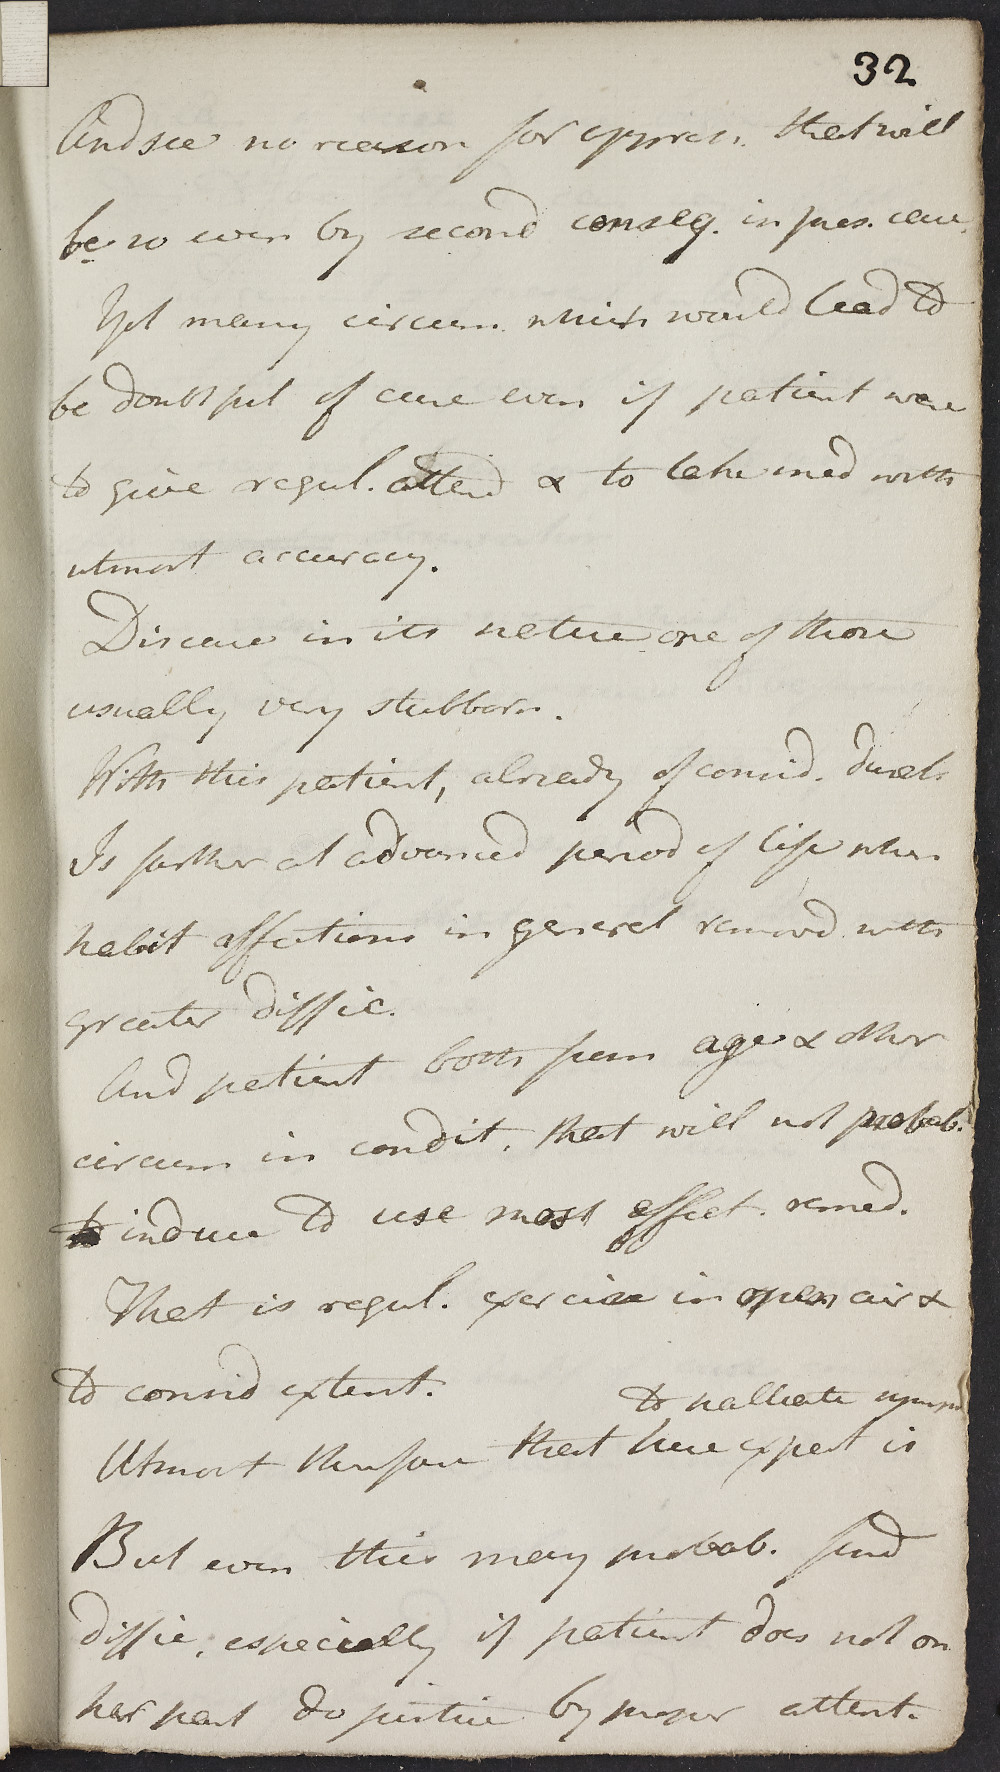 32
And see no reason for appreh. that will
be so even by second conseq. in pres. case.
Yet many circum. which would lead to
be doubtful of cure even if patient were
to give regul. attend & to take med with
utmost accuracy.
Disease in its nature one of those
usually very stubborn.
With this patient, already of consid. durat.
Is farther at advanced period of life when
habit affections in general remov'd with
greater diffic.
And patient both from age & other
circum in condit. that will not probab.
induce to use most effect. remed.
That is regul. exercise in open air &
to consid extent.
to palliate sympt
Utmost therefore that here expect is
But even this may probab. find
diffic. especially if patient does not on
her part do justice by proper attent.